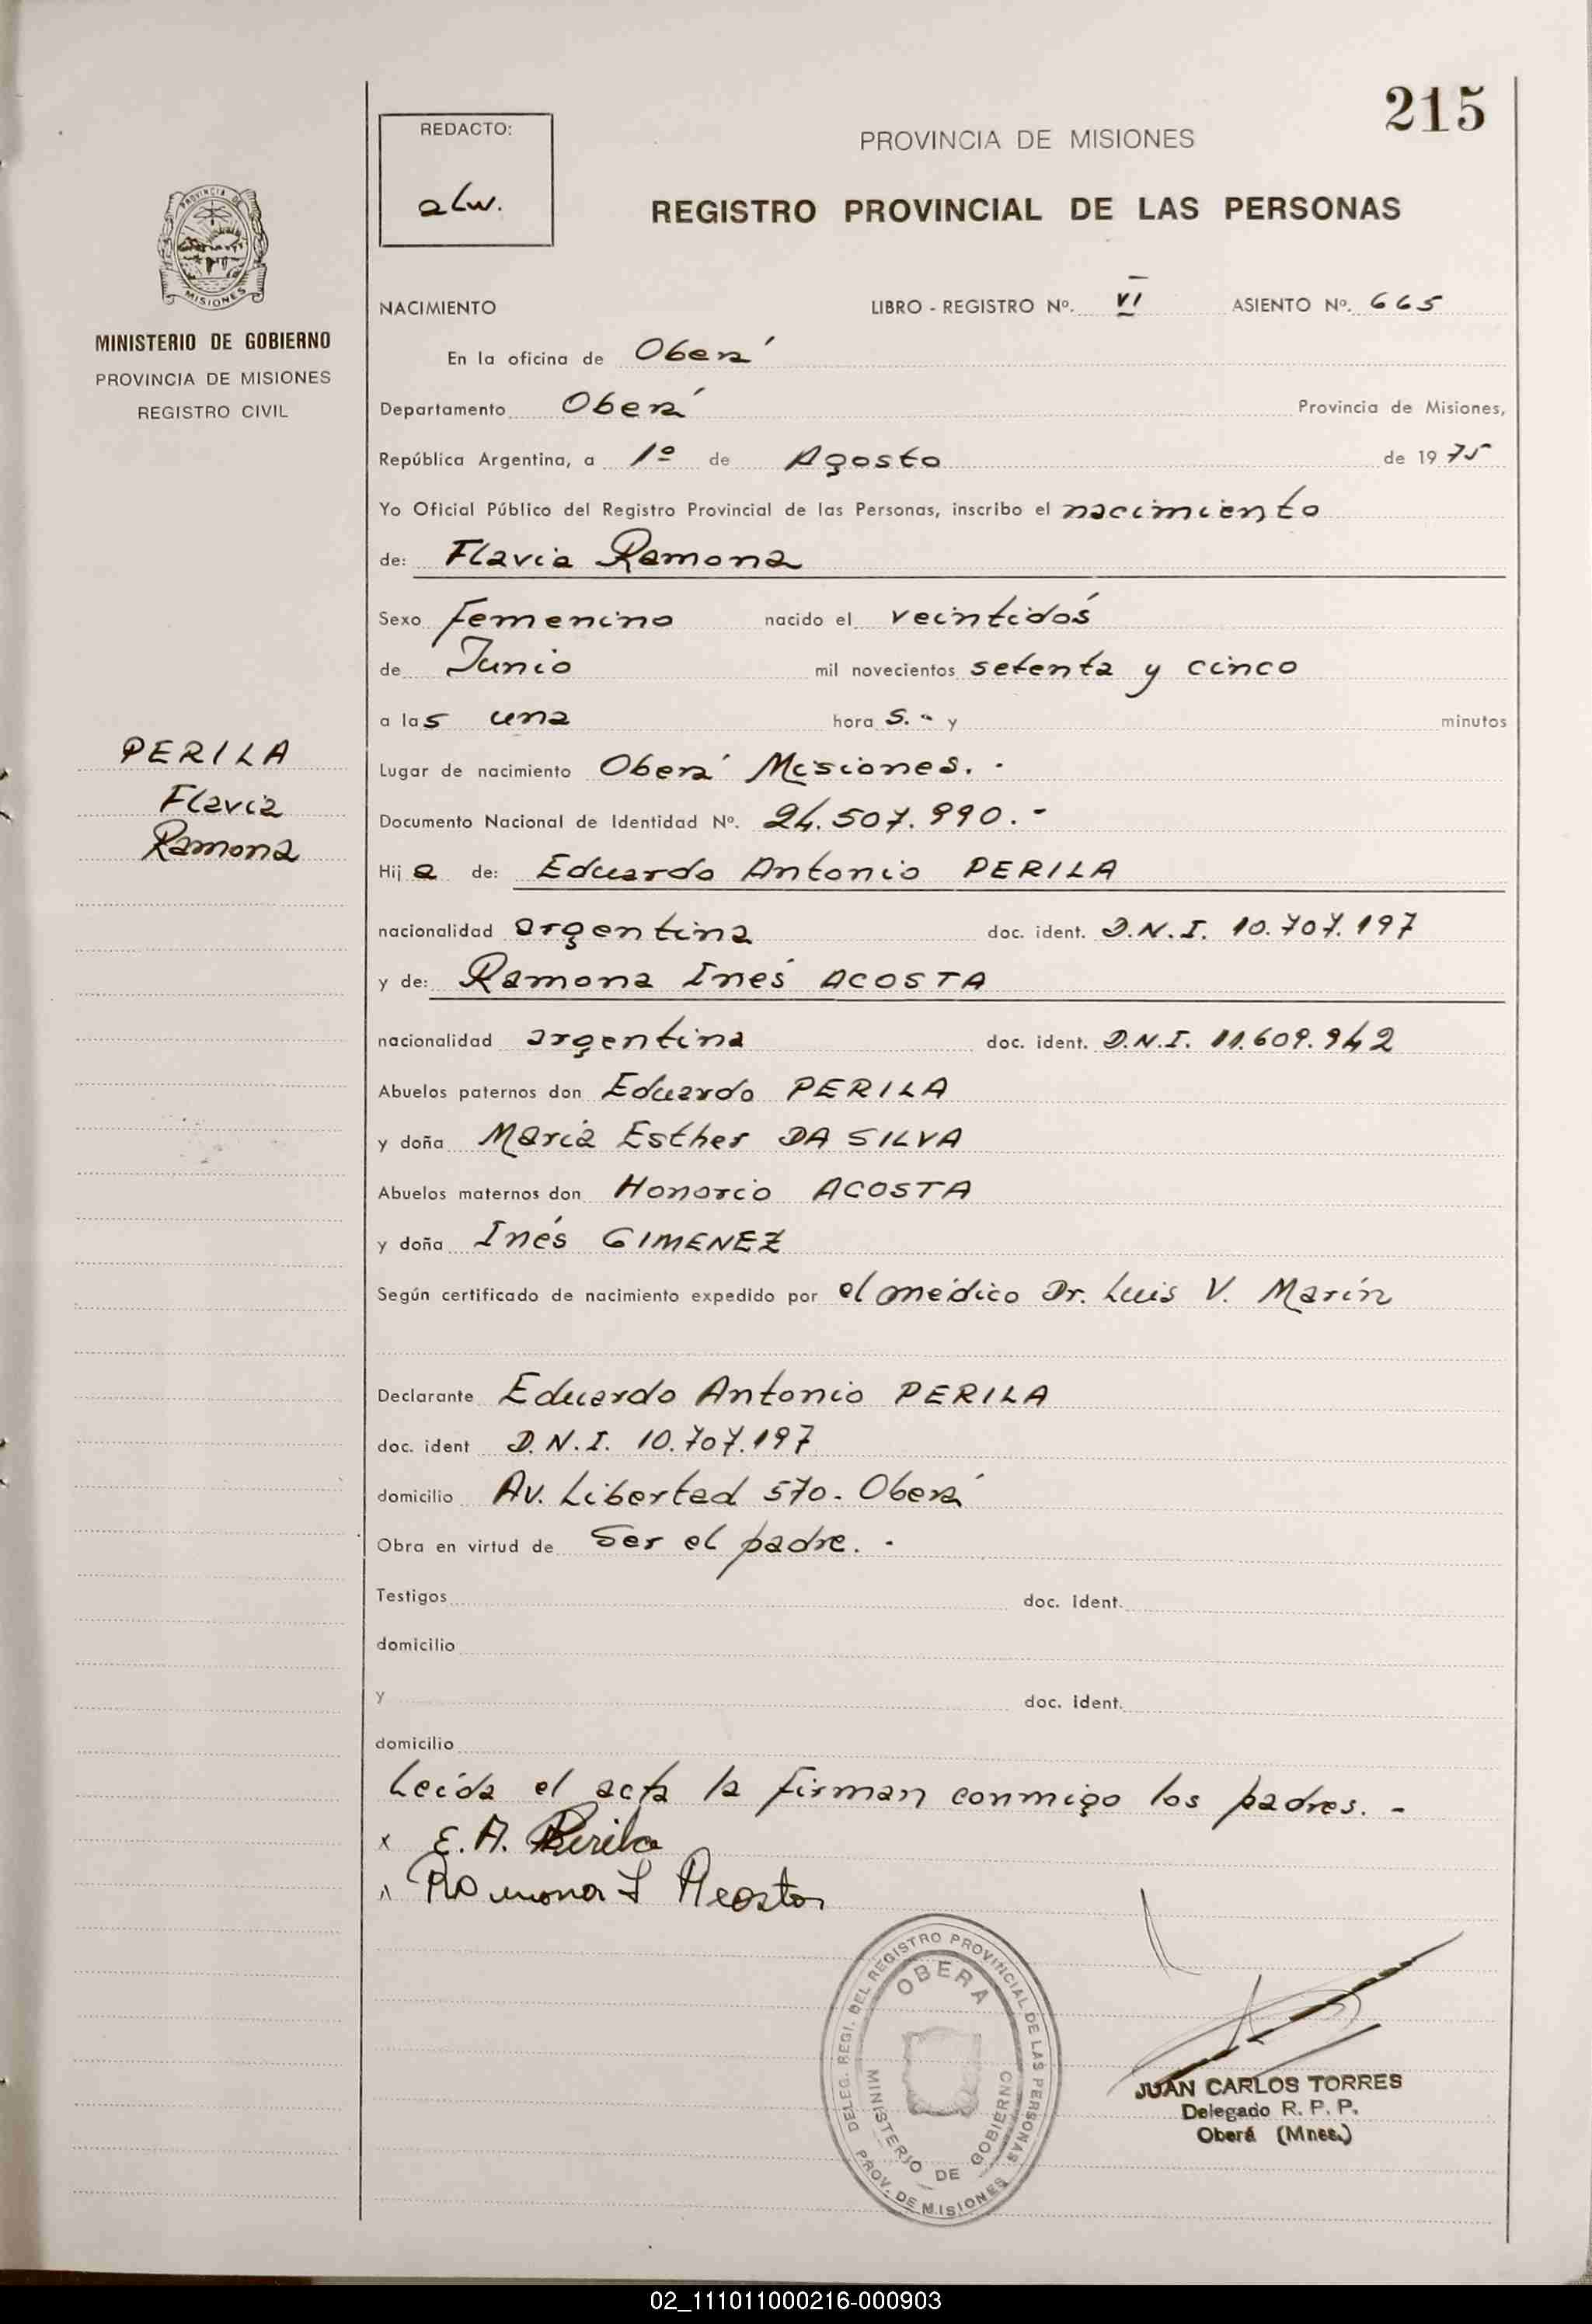 215
REDACTO:
alw.
PROVINCIA DE MISIONES
REGISTRO PROVINCIAL DE LAS PERSONAS
PROVINCIA DE
MISIONES
MINISTERIO DE GOBIERNO
PROVINCIA DE MISIONES
REGISTRO CIVIL
PERILA
Flavia
Ramona
NACIMIENTO LIBRO - REGISTRO Nº. VI ASIENTO Nº. 665
En la oficina de Oberá
Departamento Oberá Provincia de Misiones,
República Argentina, a 1º de Agosto de 1975
Yo Oficial Público del Registro Provincial de las Personas, inscribo el nacimiento
de: Flavia Ramona
Sexo Femenino nacido el veintidós
de Junio mil novecientos setenta y cinco
a las una hora s.- y minutos
Lugar de nacimiento Oberá Misiones. -
Documento Nacional de Identidad Nº. 24.507.990.-
Hija de: Eduardo Antonio PERILA
nacionalidad argentina doc. ident. D.N.I. 10.707.197
y de: Ramona Inés ACOSTA
nacionalidad argentina doc. ident. D.N.I. 11.609.942
Abuelos paternos don Eduardo PERILA
y doña María Esther DA SILVA
Abuelos maternos don Honorio ACOSTA
y doña Inés GIMENEZ
Según certificado de nacimiento expedido por el médico Dr. Luis V. Marín
Declarante Eduardo Antonio PERILA
doc. ident D.N.I. 10.707.197
domicilio Av. Libertad 570. Oberá
Obra en virtud de Ser el padre. -
Testigos doc. ident.
domicilio
y doc. ident.
domicilio
Leída el acta la firman conmigo los padres. -
x E. A. Perila
Ramona I Acosta
DELEG. REGI. DEL REGISTRO PROVINCIAL DE LAS PERSONAS
OBERA
MINISTERIO DE GOBIERNO
PROV. DE MISIONES
JUAN CARLOS TORRES
Delegado R. P. P.
Oberá (Mnes.)
02_111011000216-000903